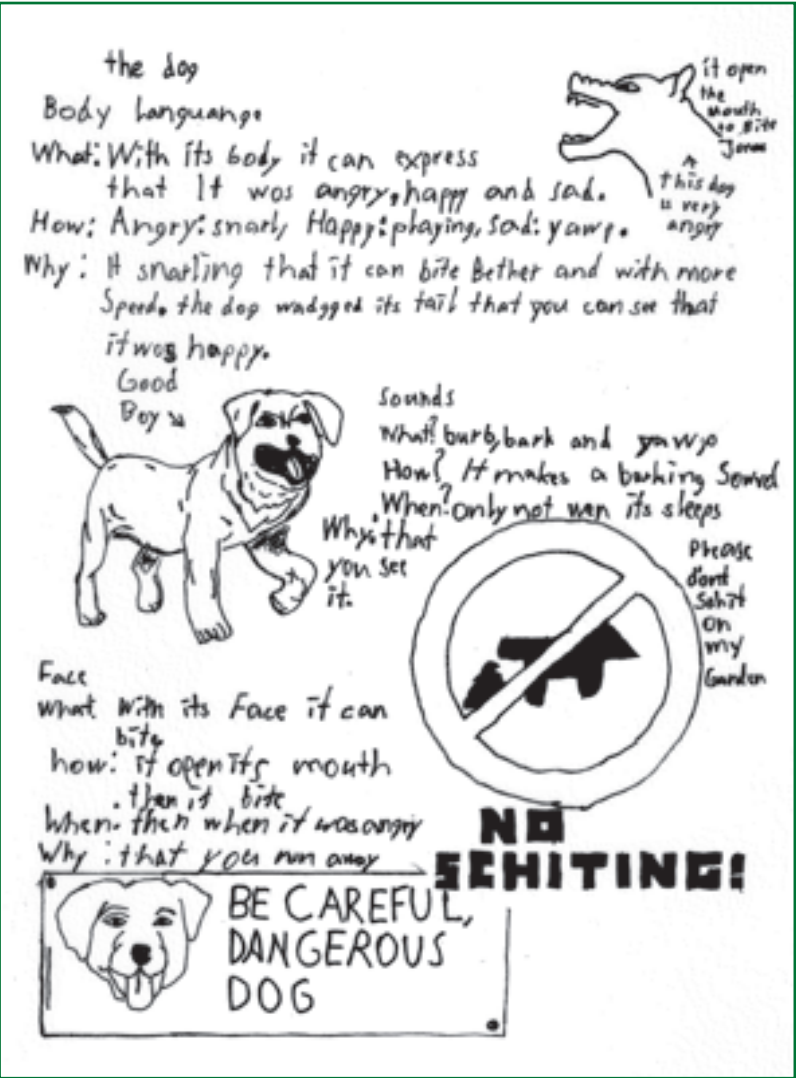 the dog
Body Languange
What: With its body it can express
that It wos angry, happy and sad.
How: Angry: snarl, Happy: playing, Sad: yawp.
Why: It snarling that it can bite Bether and with more
Speed. the dog wadgged its tail that you can see that
it wos happy.
it open
the
mouth
to Bite
this dog
is very
angry
Good
Boy
Sounds
What? burb, bark and yawp
How? It makes a barking Sound
When? only not wen its sleeps
Why: that
you see
it.
Please
dont
Schit
on
my
Garden
NO
SCHITING!
Face
what With its Face it can
bite
how: it open its mouth
then it bite
When: then when it was angry
Why: that you run away
BE CAREFUL,
DANGEROUS
DOG